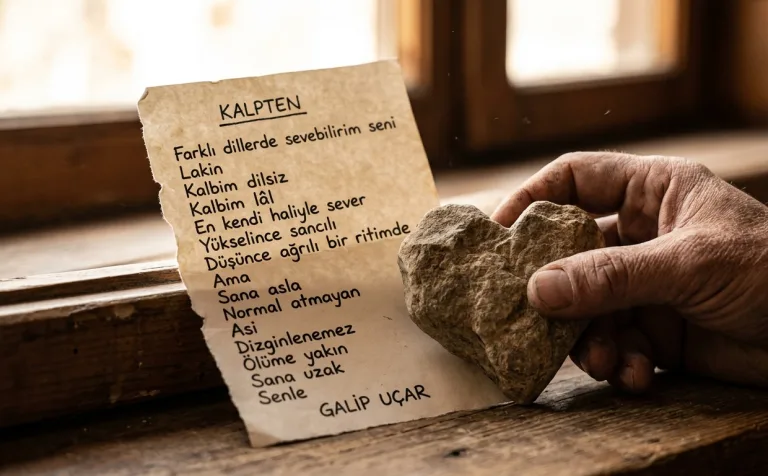 KALPTEN
Farklı dillerde sevebilirim seni
Lakin
Kalbim dilsiz
Kalbim lâl
En kendi haliyle sever
Yükselince sancılı
Düşünce ağrılı bir ritimde
Ama
Sana asla
Normal atmayan
Asi
Dizginlenemez
Ölüme yakın
Sana uzak
Senle
GALİP UÇAR